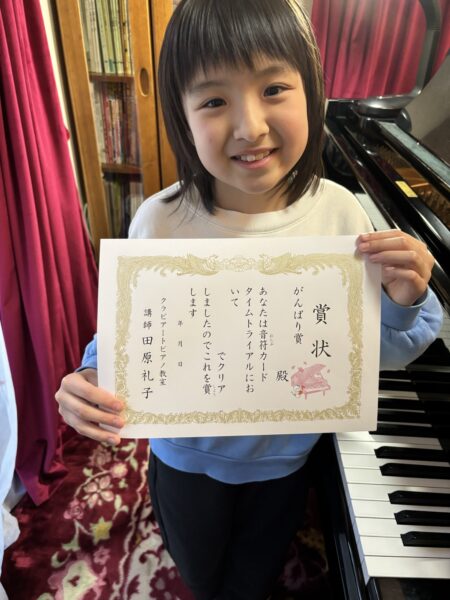 賞状
がんばり賞
殿
あなたは音符カード
タイムトライアルにお
いて
でクリア
しましたのでこれを賞
します
年 月 日
クラビアートピアノ教室
講師 田原礼子